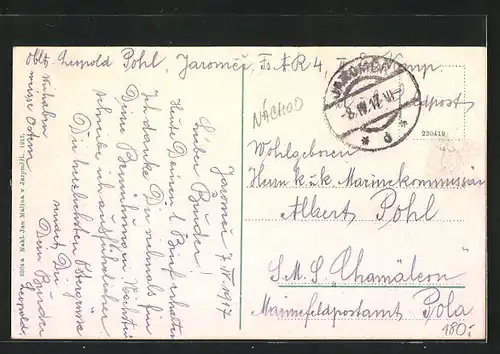 Oblt. Leopold Pohl, Jaroměř, F.A.R 4,
Feldpost
NÁCHOD
JAROMĚŘ
230419
Wohlgeboren
Herrn k.u.k. Marinekommissär
Albert Pohl
S.M.S. Chamäleon
Marinefeldpostamt Pola
180,-
Jaroměř 7/IV. 1917
Lieber Bruder!
Heute Deinen l. Brief erhalten
Ich danke Dir vielmals für
Deine Bemühungen. Nächstens
schreibe ich ausführlicher.
Die herzlichsten Ostergrüsse
Dein Bruder
Leopold
Nakl. Jan Malina v Jaroměři. 1917.